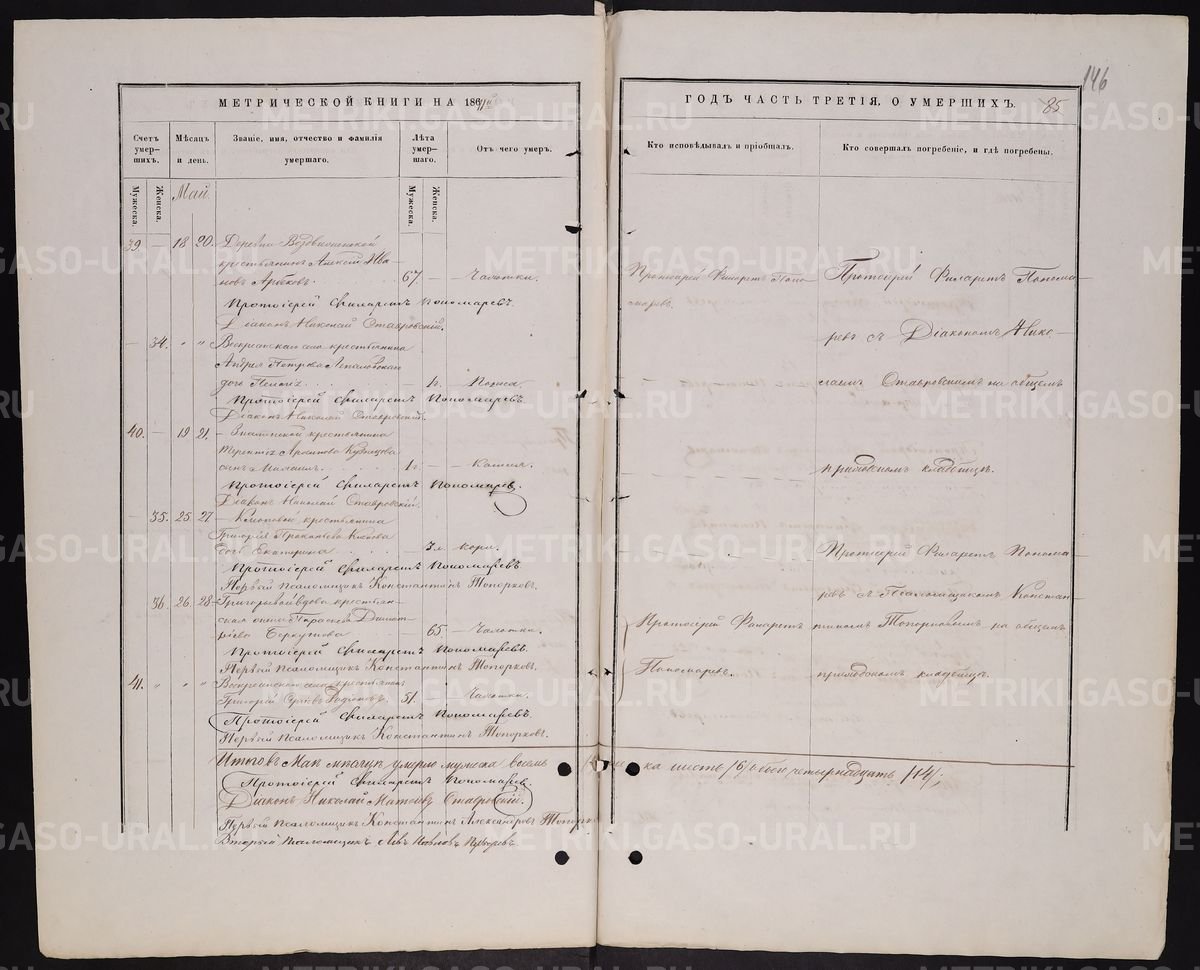 146
МЕТРИЧЕСКОЙ КНИГИ НА 186
ГОДЪ ЧАСТЬ ТРЕТІЯ, О УМЕРШИХЪ.
85
Счетъ умер- шихъ.
Мѣсяцъ и день.
Званіе, имя, отчество и фамилія умершаго.
Лѣта умер- шаго.
Отъ чего умеръ.
Кто исповѣдывалъ и пріобщалъ.
Кто совершалъ погребеніе, и гдѣ погребены.
Мужеска.
Женска.
Май.
Мужеска.
Женска.
39. — 18 20. Деревни Воздвиженской
крестьянинъ Алексѣй Ива-
новъ 67. — Чахотки.
Протоіерей Филаретъ Пономаревъ.
Діаконъ Николай Ставровскій.
— 34. " " Воскресенскаго села крестьянина
Андрея Петрова
дочь — Поноса.
Протоіерей Филаретъ Пономаревъ
Діаконъ Николай Ставровскій.
40. — 19 21. крестьянина
Терентія Кузнецова
сынъ 1 г. —
Протоіерей Филаретъ Пономаревъ.
Діаконъ Николай Ставровскій.
— 35. 25. 27 крестьянина
Григорія
дочь Екатерина — 3 кори.
Протоіерей Филаретъ Пономаревъ
Первый псаломщикъ Константинъ Топорковъ.
36. 26. 28 вдова крестьян-
ская жена Параскева Димит-
ріева — 65. — Чахотки.
Протоіерей Филаретъ Пономаревъ.
Первый псаломщикъ Константинъ Топорковъ.
41. " " " Воскресенскаго села крестьянинъ
Григорій 51. Чахотки.
Протоіерей Филаретъ Пономаревъ.
Первый псаломщикъ Константинъ Топорковъ.
Протоіерей Филаретъ Поно-
маревъ.
Протоіерей Филаретъ Понома-
ревъ съ Діакономъ Нико-
лаемъ Ставровскимъ на общемъ
приходскомъ кладбищѣ.
Протоіерей Филаретъ Понома-
ревъ съ Псаломщикомъ Констан-
Протоіерей Филаретъ
тиномъ Топорковымъ на общемъ
Пономаревъ.
приходскомъ кладбищѣ.
Итого въ Маѣ мѣсяцѣ умерло мужеска восемь ка шесть /6/ обоего четырнадцать /14/;
Протоіерей Филаретъ Пономаревъ
Діаконъ Николай Матвѣевъ Ставровскій.
Первый псаломщикъ Константинъ Александровъ Топорк
Второй псаломщикъ Левъ Павловъ
METRIKI.GASO-URAL.RU